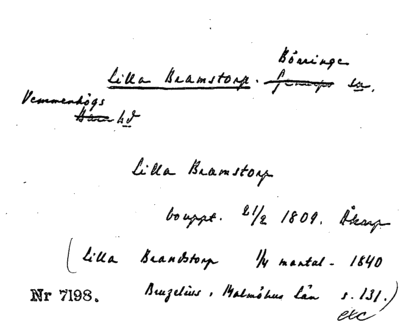 Börringe
Lilla Bramstorp. Gärarps sn.
Vemmenhögs
Bara hd
Lilla Bramstorp
bouppt. 21/2 1809. Åkarp
(Lilla Brandstorp 1/4 mantal - 1840
Nr 7198. Bruzelius, Malmöhus län s. 131.)
exc